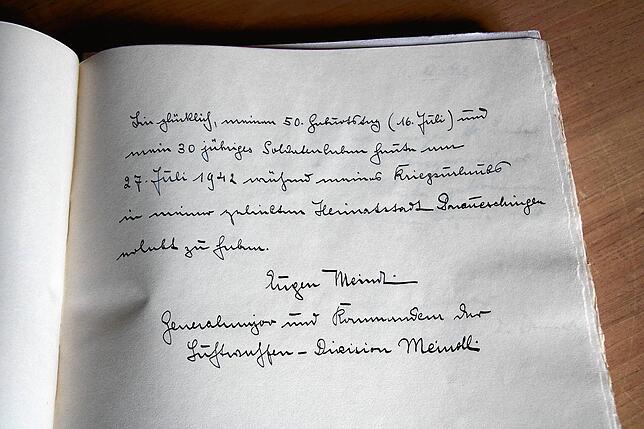 Bin glücklich, meinen 50. Geburtstag (16. Juli) und
mein 30 jähriges Soldatenleben heute am
27. Juli 1942 während meines Kriegsurlaubs
in meiner geliebten Heimatstadt Donaueschingen
erlebt zu haben.
Eugen Meindl.
Generalmajor und Kommandeur der
Luftwaffen-Division Meindl.